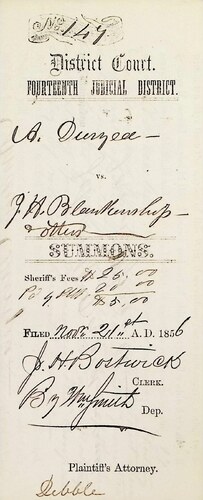 No. 147
District Court.
FOURTEENTH JUDICIAL DISTRICT.
A. Duryea
vs.
J. H. Blankenship
& others
SUMMONS.
Sheriff's Fees $ 25.00
20.00
$5.00
FILED Novr 21st A. D. 1856
J. H. Bostwick
CLERK.
By Wm Smith
Dep.
Plaintiff's Attorney.
Dibble